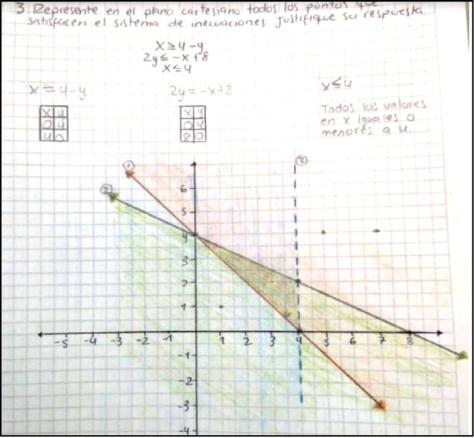 3. Represente en el plano cartesiano todos los puntos que
satisfacen el sistema de inecuaciones Justifique su respuesta
x ≥ 4 - y
2y ≤ -x + 8
x ≤ 4
x = 4 - y
2y = -x + 8
x ≤ 4
x y
0 4
4 0
x y
0 4
8 0
Todos los valores
en x iguales o
menores a 4.
1
2
3
6
5
4
3
2
1
-5 -4 -3 -2 -1 1 2 3 4 5 6 7 8
-1
-2
-3
-4